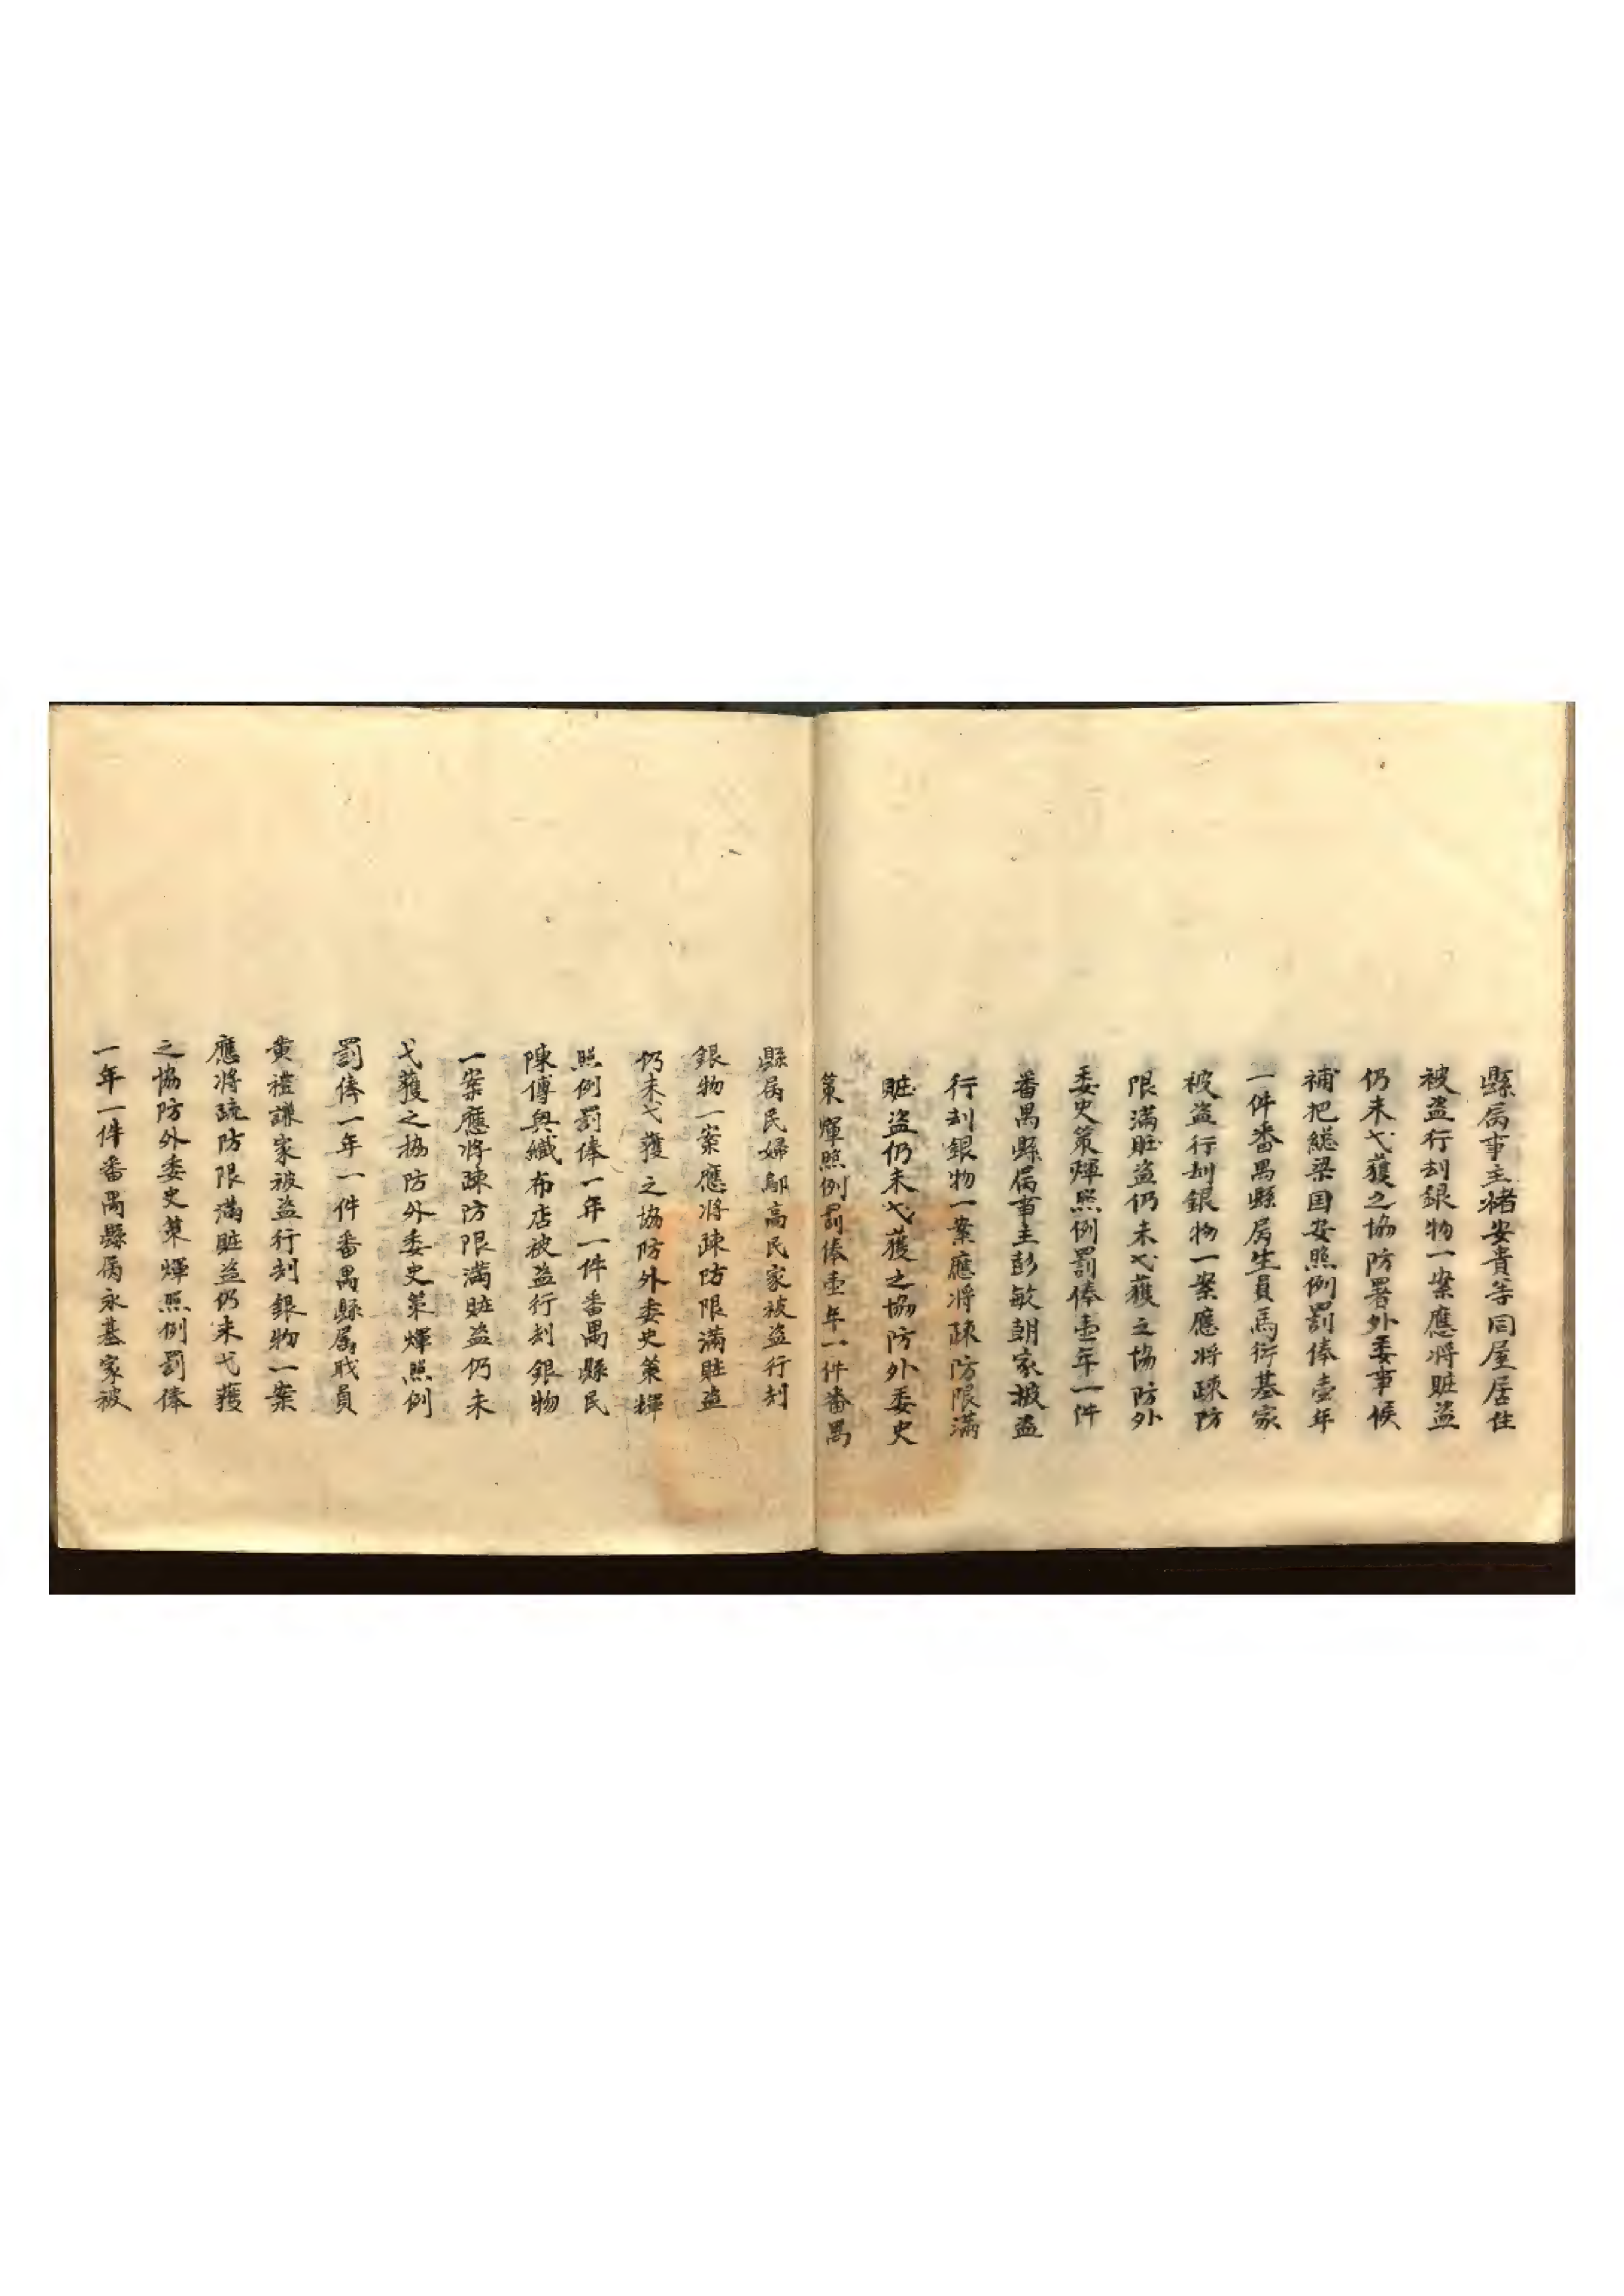 縣属事主褚安貴等同屋居住
被盗行刦銀物一案應将賍盗
仍未弋獲之協防署外委事候
補把總梁国安照例罰俸壹年
一件番禺縣房生員馬衍基家
被盗行刦銀物一案應将疎防
限滿賍盗仍未弋獲之協防外
委史策煇照例罰俸壹年一件
番禺縣属事主彭敏朝家被盗
行刦銀物一案應将疎防限滿
賍盗仍未弋獲之協防外委史
策煇照例罰俸壹年一件番禺
縣属民婦鄔高民家被盗行刦
銀物一案應将疎防限滿賍盗
仍未弋獲之協防外委史策輝
照例罰俸一年一件番禺縣民
陳傳興織布店被盗行刦銀物
一案應将疎防限滿賍盗仍未
弋獲之協防外委史策煇照例
罰俸一年一件番禺縣属戝員
黄禮謙家被盗行刦銀物一案
應将疏防限滿賍盗仍未弋獲
之協防外委史策煇照例罰俸
一年一件番禺縣属永基家被